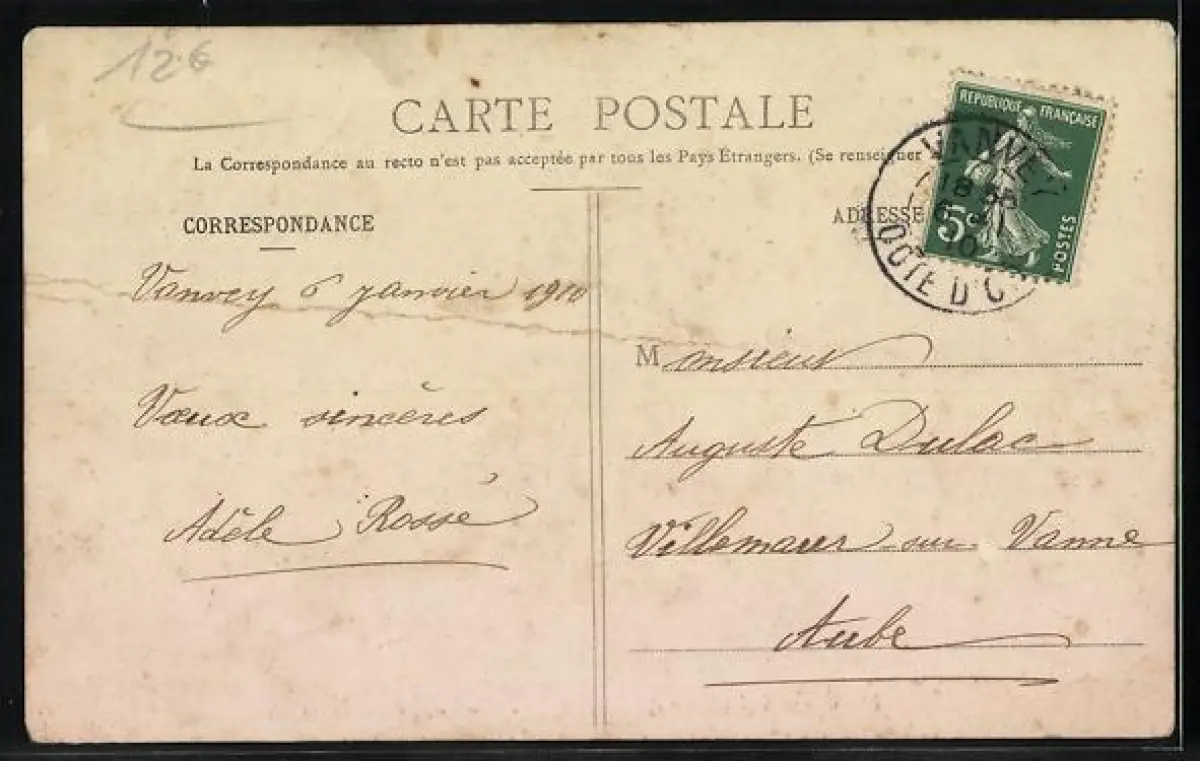 12€
CARTE POSTALE
La Correspondance au recto n'est pas acceptée par tous les Pays Étrangers. (Se renseigner
CORRESPONDANCE
ADRESSE
REPUBLIQUE FRANÇAISE
5c
POSTES
VANVEY
18
10
COTE D'O
Vanvey 6 janvier 1910
Vœux sincères
Adèle Rossé
Monsieur
Auguste Dulac
Villemaur-sur Vanne
Aube